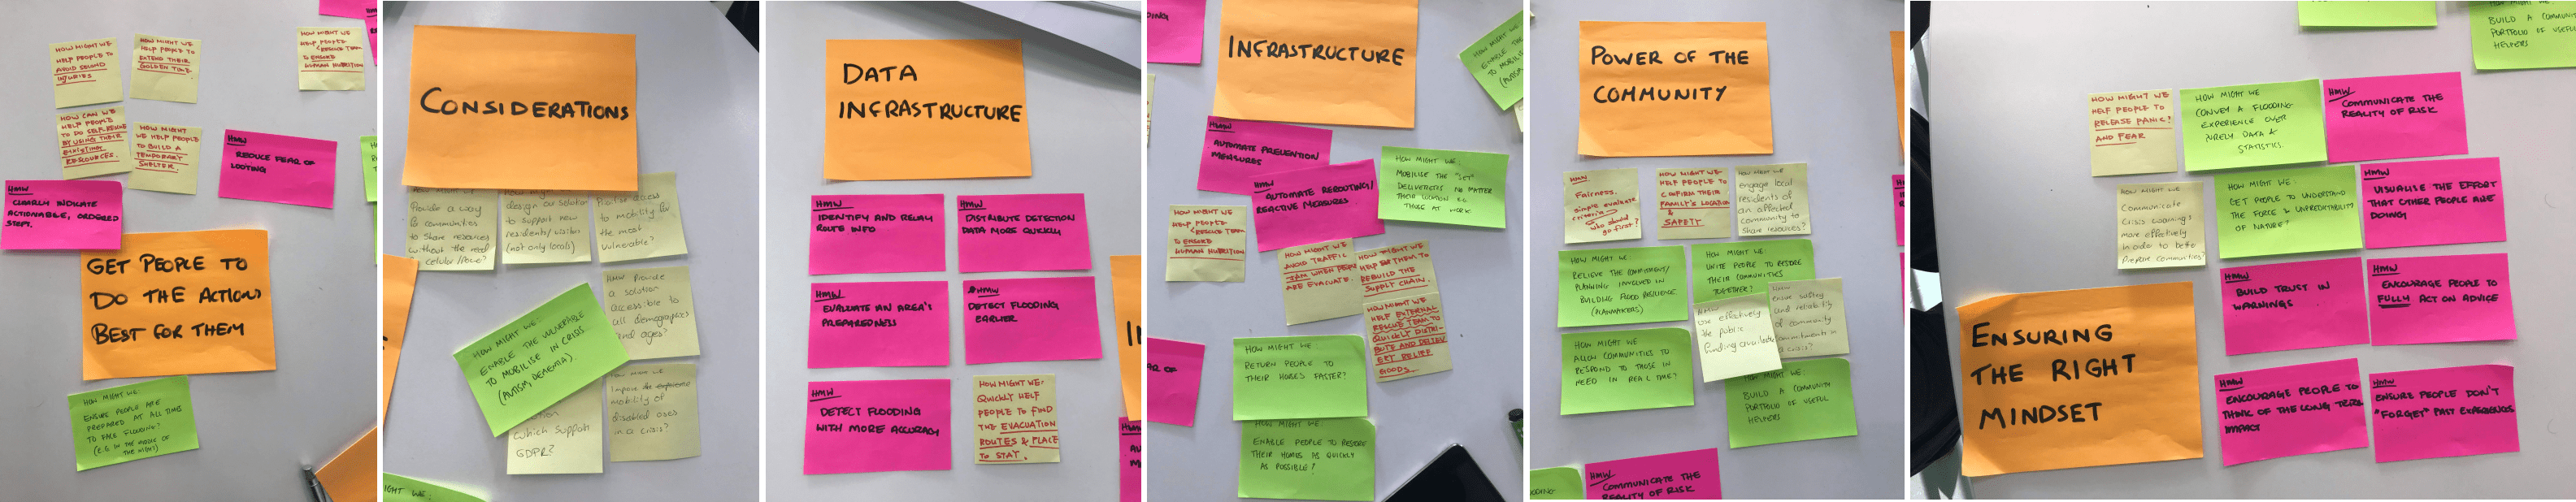 HOW MIGHT WE
HELP PEOPLE TO
AVOID SECOND
INJURIES
HOW MIGHT WE
HELP PEOPLE TO
EXTEND THEIR
GOLDEN TIME
HOW MIGHT WE
HELP PEOPLE
& RESCUE TEAM
TO ENSURE
HUMAN NUTRITION
HOW CAN WE
HELP PEOPLE
TO DO SELF-RESCUE
BY USING THEIR
EXISTING
RESOURCES.
HOW MIGHT
WE HELP PEOPLE
TO BUILD A
TEMPORARY
SHELTER.
HMW
REDUCE FEAR OF
LOOTING
HMW
CLEARLY INDICATE
ACTIONABLE, ORDERED
STEPS.
GET PEOPLE TO
DO THE ACTIONS
BEST FOR THEM
HOW MIGHT WE:
ENSURE PEOPLE ARE
PREPARED AT ALL TIMES
TO FACE FLOODING?
(E.G IN THE MIDDLE OF
THE NIGHT)
CONSIDERATIONS
Provide a way
for communities
to share resources
without the need
design our solution
to support new
residents/visitors
(not only locals)
access
to mobility for
the most
vulnerable?
HMW Provide
a solution
accessible to
all demographics
and ages?
HOW MIGHT WE:
ENABLE THE VULNERABLE
TO MOBILISE IN CRISIS
(AUTISM, DEMENTIA).
which support
GDPR?
Improve the
mobility of
disabled ones
in a crisis?
DATA
INFRASTRUCTURE
HMW
IDENTIFY AND RELAY
ROUTE INFO
HMW
DISTRIBUTE DETECTION
DATA MORE QUICKLY
HMW
EVALUATE AN AREA'S
PREPAREDNESS
HMW
DETECT FLOODING
EARLIER
HMW
DETECT FLOODING
WITH MORE ACCURACY
HOW MIGHT WE:
QUICKLY HELP
PEOPLE TO FIND
THE EVACUATION
ROUTES & PLACE
TO STAY.
INFRASTRUCTURE
HMW
AUTOMATE PREVENTION
MEASURES
HMW
AUTOMATE REROUTING/
REACTIVE MEASURES
HOW MIGHT WE:
MOBILISE THE
NO MATTER
THEIR LOCATION EG
THOSE AT WORK.
HOW MIGHT WE
HELP PEOPLE
& RESCUE TEAM
TO ENSURE
HUMAN NUTRITION
HOW MIGHT WE
AVOID TRAFFIC
JAM WHEN PEOPLE
ARE EVACUATE.
HOW MIGHT WE
HELP THEM TO
REBUILD THE
SUPPLY CHAIN.
HOW MIGHT WE
HELP EXTERNAL
RESCUE TEAM TO
QUICKLY DISTRI-
BUTE AND DELIVER
RELIEF
GOODS.
HOW MIGHT WE:
RETURN PEOPLE TO
THEIR HOMES FASTER?
HOW MIGHT WE:
ENABLE PEOPLE TO RESTORE
THEIR HOMES AS QUICKLY
AS POSSIBLE?
POWER OF THE
COMMUNITY
HMW
Fairness.
simple evaluate
criteria
who should
go first?
HOW MIGHT WE
HELP PEOPLE TO
CONFIRM THEIR
FAMILY'S LOCATION
&
SAFETY
HOW MIGHT WE
engage local
residents of
an affected
community to
share resources?
HOW MIGHT WE:
RELIEVE THE COMMITMENT/
PLANNING INVOLVED IN
BUILDING FLOOD RESILIENCE
(PLANMAKERS)
HOW MIGHT WE:
UNITE PEOPLE TO RESTORE
THEIR COMMUNITIES
TOGETHER?
HMW
use effectively
the public
funding available
HMW
ensure safety
and reliability
of community
commitments in
a crisis?
HOW MIGHT WE
ALLOW COMMUNITIES TO
RESPOND TO THOSE IN
NEED IN REAL TIME?
HOW MIGHT WE:
BUILD A COMMUNITY
PORTFOLIO OF USEFUL
HELPERS
HMW
COMMUNICATE THE
REALITY OF RISK
BUILD A COMMUNI
PORTFOLIO OF USEFUL
HELPERS
HOW MIGHT WE
HELP PEOPLE TO
RELEASE PANIC?
AND FEAR
HOW MIGHT WE
CONVEY A FLOODING
EXPERIENCE OVER
PURELY DATA &
STATISTICS.
HMW
COMMUNICATE THE
REALITY OF RISK
HOW MIGHT WE
Communicate
Crisis warnings
more effectively
in order to better
Prepare communities?
HOW MIGHT WE:
GET PEOPLE TO UNDERSTAND
THE FORCE & UNPREDICTABILITY
OF NATURE?
HMW
VISUALISE THE EFFORT
THAT OTHER PEOPLE ARE
DOING
HMW
BUILD TRUST IN
WARNINGS
HMW
ENCOURAGE PEOPLE TO
FULLY ACT ON ADVICE
ENSURING
THE RIGHT
MINDSET
HMW
ENCOURAGE PEOPLE TO
THINK OF THE LONG TERM
IMPACT
HMW
ENSURE PEOPLE DON'T
"FORGET" PAST EXPERIENCES